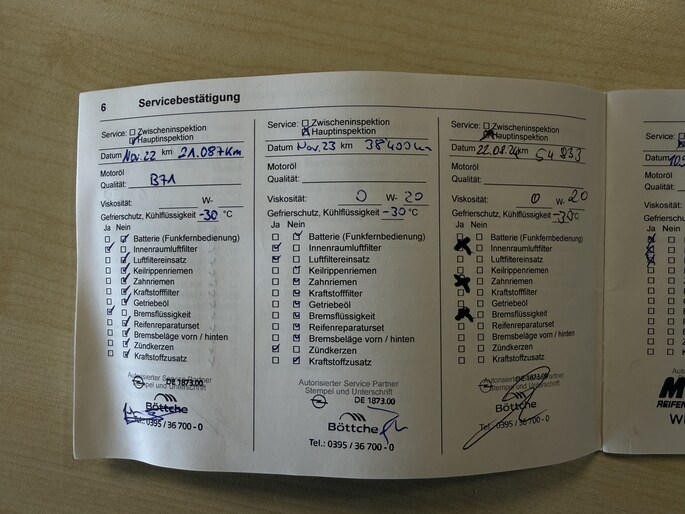 6 Servicebestätigung
Service: Zwischeninspektion
Hauptinspektion
Datum Nov. 22 km 21.087 Km
Motoröl
Qualität: B71
Viskosität: W-
Gefrierschutz, Kühlflüssigkeit -30 °C
Ja Nein
Batterie (Funkfernbedienung)
Innenraumluftfilter
Luftfiltereinsatz
Keilrippenriemen
Zahnriemen
Kraftstofffilter
Getriebeöl
Bremsflüssigkeit
Reifenreparaturset
Bremsbeläge vorn / hinten
Zündkerzen
Kraftstoffzusatz
Autorisierter Service Partner
Stempel und Unterschrift
DE 1873.00
Böttche
Tel.: 0395 / 36 700 - 0
Service: Zwischeninspektion
Hauptinspektion
Datum Nov. 23 km 38400 km
Motoröl
Qualität:
Viskosität: 0 W- 20
Gefrierschutz, Kühlflüssigkeit -30 °C
Ja Nein
Batterie (Funkfernbedienung)
Innenraumluftfilter
Luftfiltereinsatz
Keilrippenriemen
Zahnriemen
Kraftstofffilter
Getriebeöl
Bremsflüssigkeit
Reifenreparaturset
Bremsbeläge vorn / hinten
Zündkerzen
Kraftstoffzusatz
Autorisierter Service Partner
Stempel und Unterschrift
DE 1873.00
Böttche
Tel.: 0395 / 36 700 - 0
Service: Zwischeninspektion
Hauptinspektion
Datum 22.08.24 km
Motoröl
Qualität:
Viskosität: 0 W- 20
Gefrierschutz, Kühlflüssigkeit °C
Ja Nein
Batterie (Funkfernbedienung)
Innenraumluftfilter
Luftfiltereinsatz
Keilrippenriemen
Zahnriemen
Kraftstofffilter
Getriebeöl
Bremsflüssigkeit
Reifenreparaturset
Bremsbeläge vorn / hinten
Zündkerzen
Kraftstoffzusatz
Autorisierter Service Partner
Stempel und Unterschrift
DE 1873.00
Böttche
Tel.: 0395 / 36 700 - 0
Service:
Datum
Motoröl
Qualität:
Viskosität:
Gefrierschutz
Ja Nein
REIFEN